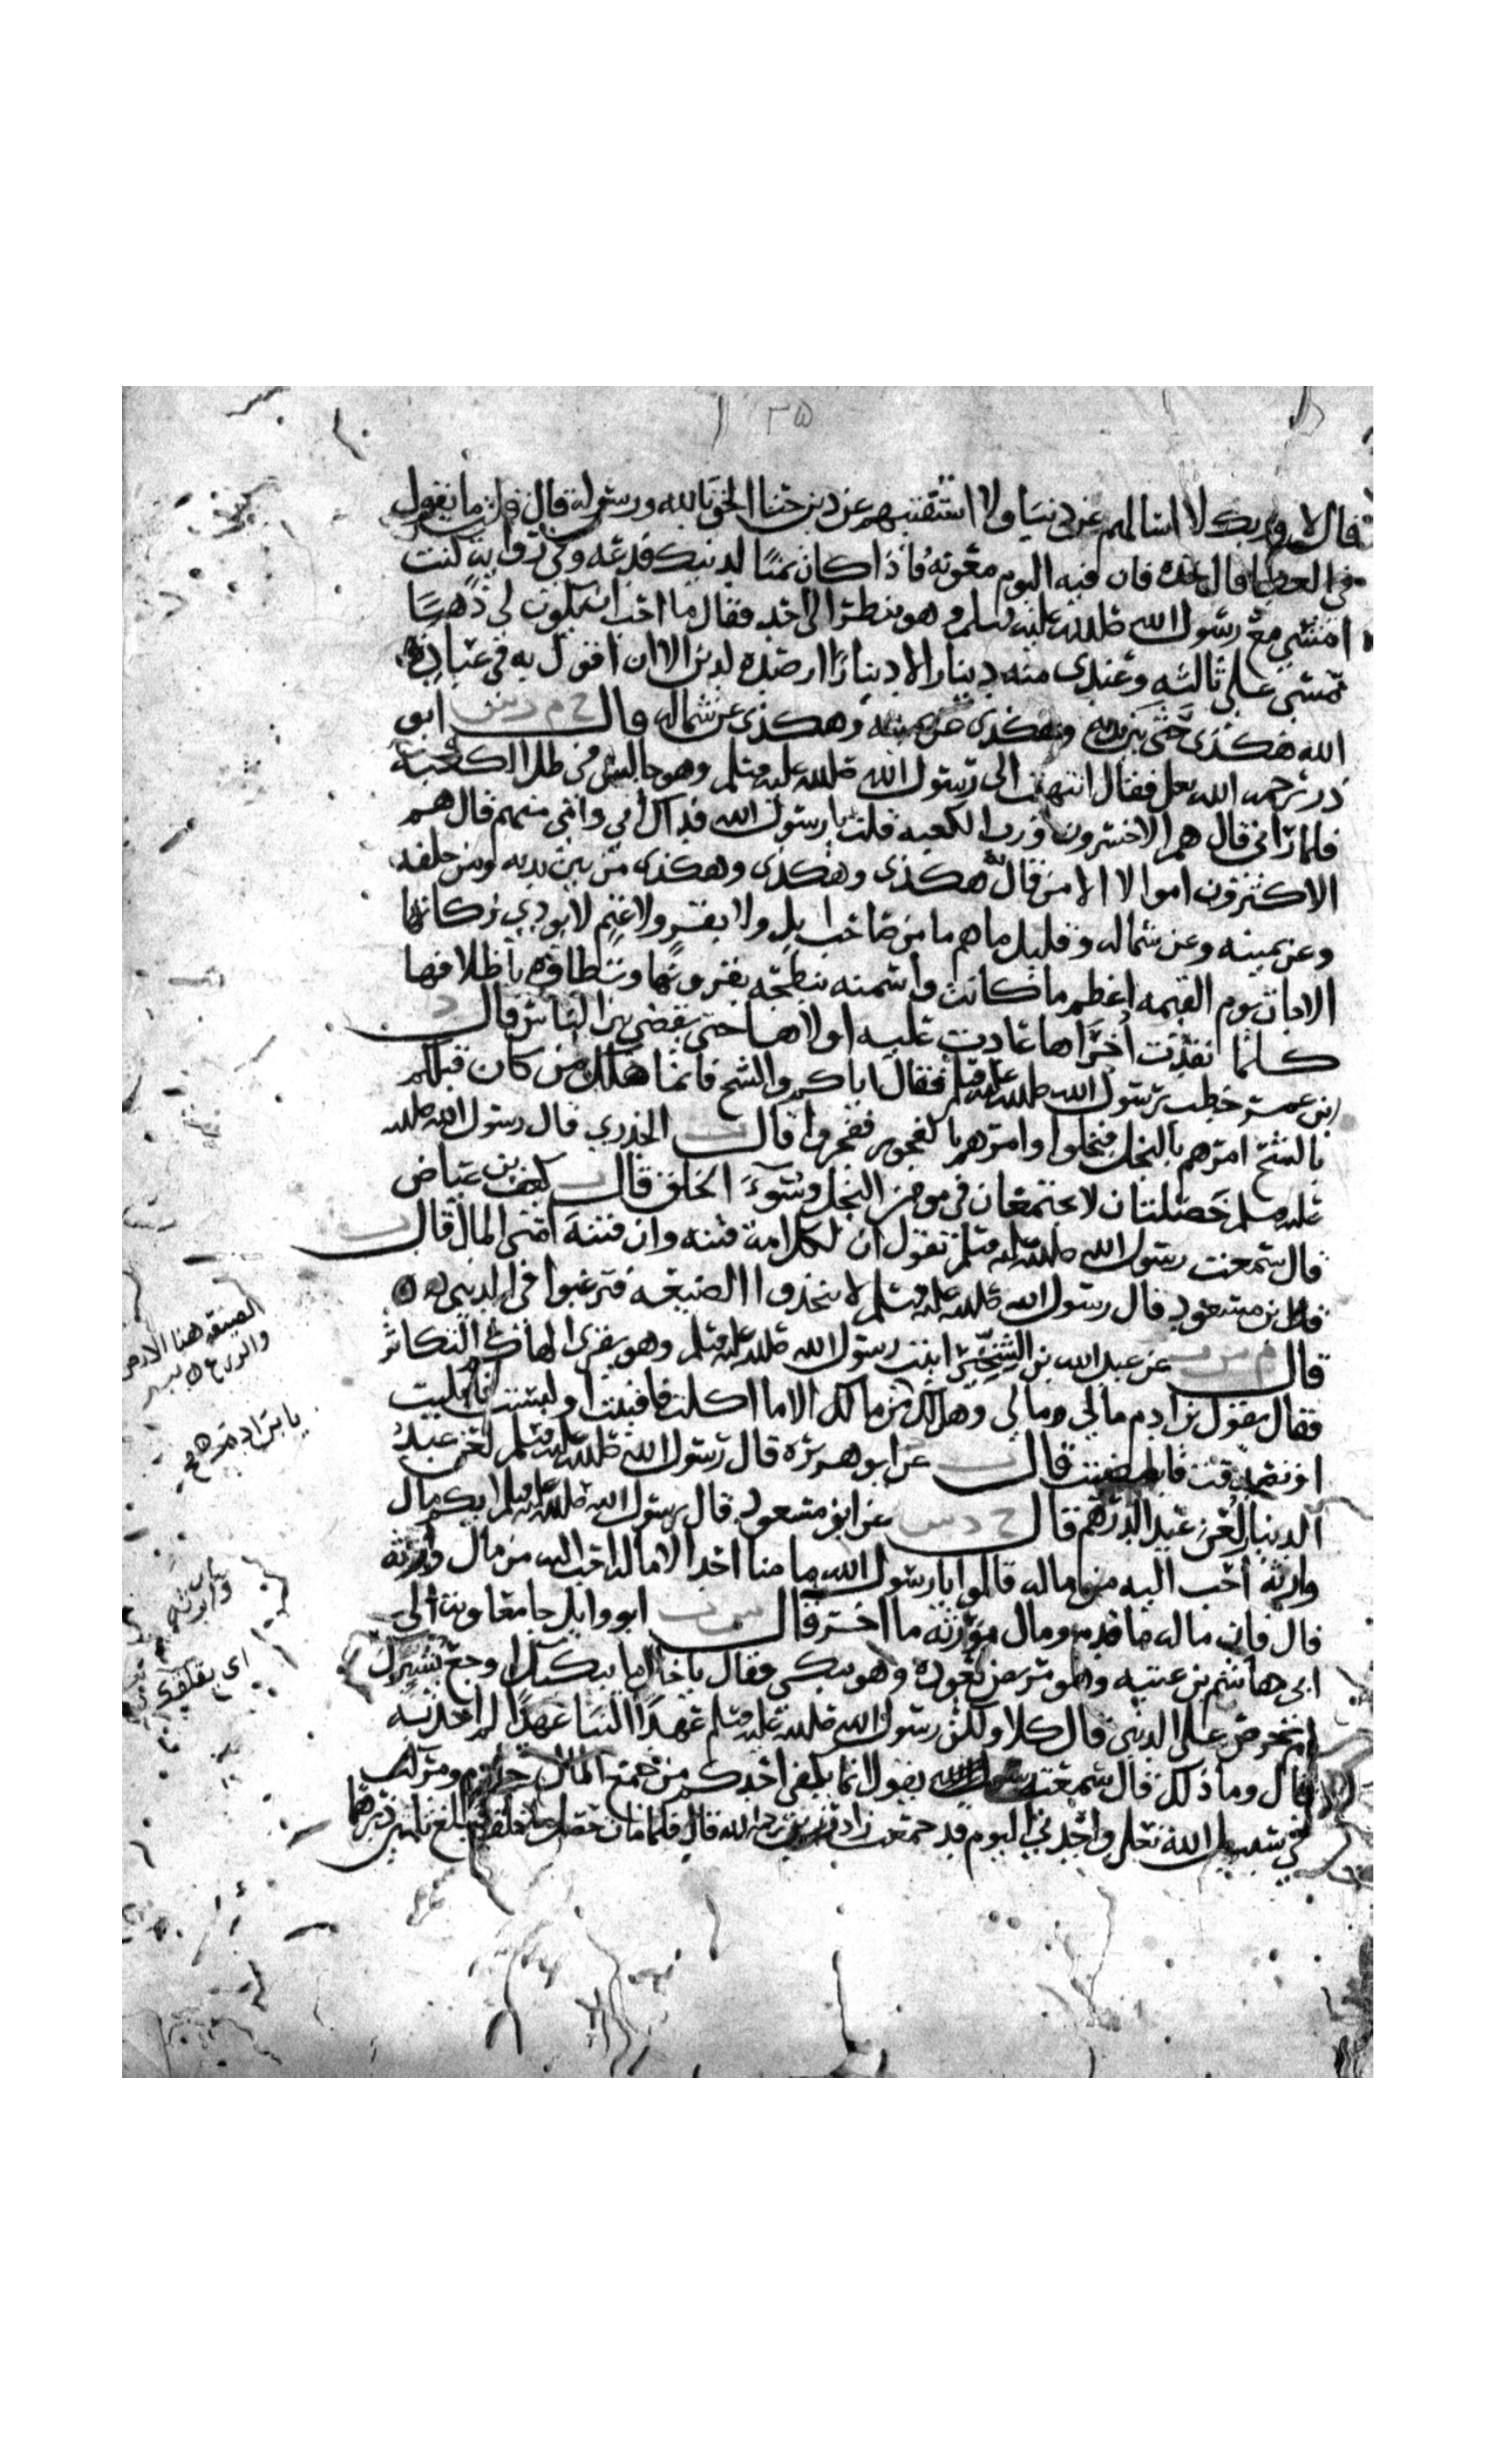 ٢٥
قال لا وربك لا اسالهم عن دنيا ولا استفتيهم عن دين حتى الحق بالله ورسوله قال قلت ما يقول
في العطا قال خذه فان فيه اليوم معونه فاذا كان ثمنا لدينك فدعه وفي روايه كنت
امشي مع رسول الله صلى الله عليه وسلم وهو ينظر الى احد فقال ما احب ان يكون لي ذهبا
تمسي علي ثالثه وعندي منه دينار الا دينارا ارصده لدين الا ان اقول به في عباد
الله هكذى حتى بين يديه وهكذى عن يمينه وهكذى عن شماله قال خ م د س ابو
ذر رحمه الله تعلى فقال انتهيت الى رسول الله صلى الله عليه وسلم وهو جالس في ظل الكعبة
فلما رأني قال هم الاخسرون ورب الكعبه قلت يا رسول الله فداك ابي وامي منهم قال هم
الاكثرون اموالا الا من قال هكذى وهكذى وهكذى من بين يديه ومن خلفه
وعن يمينه وعن شماله وقليل ما هم ما من صاحب ابل ولا بقر ولا غنم لا يودي زكاتها
الا جات يوم القيمه اعظم ما كانت واسمنه تنطحه بقرونها وتطاوه باظلافها
كلما نفذت أخراها عادت عليه اولاها حتى يقضى بين الناس قال د
ابن عمر خطب رسول الله صلى الله عليه وسلم فقال اياكم والشح فانما هلك من كان قبلكم
بالشح امرهم بالبخل فبخلوا وامرهم بالفجور ففجروا قال ت الخدري قال رسول الله صلى الله
عليه وسلم خصلتان لا يجتمعان في مومن البخل وسوء الخلق قال ت كعب بن عياض
قال سمعت رسول الله صلى الله عليه وسلم يقول ان لكل امة فتنه وان فتنة امتي المال قال ت
بن مسعود قال رسول الله صلى الله عليه وسلم لا تتخذوا الضيعه فترغبوا في الدنيى
قال م س ت عن عبد الله بن الشخير اتيت رسول الله صلى الله عليه وسلم وهو يقرى الهاكم التكاثر
فقال يقول بن ادم مالي ومالي وهل لك من مالك الا ما اكلت فافنيت او لبست فابليت
او تصدقت فامضيت قال ت عن ابو هريره قال رسول الله صلى الله عليه وسلم لعن عبد
الدينار لعن عبد الدرهم قال خ د س عن ابو مسعود قال رسول الله صلى الله عليه وسلم ايكم مال
وارثه احب اليه من ماله قالوا يا رسول الله ما منا احد الا ماله احب اليه من مال وارثه
قال فان ماله ما قدم ومال موارثه ما اخر قال س ت ابو وايل جا معاويه الى
ابي هاشم بن عتبه وهو مريض يعوده وهو يبكي فقال يا خال ما يبكيك اوجع يشيزك
ام حرص على الدنيى قال كلا ولكن رسول الله صلى الله عليه وسلم عهد الينا عهدا لم اخذ به
قال وما ذلك قال سمعته يقول انما يكفي احدكم من جمع المال خادم ومركب
في سبيل الله تعلى واجدني اليوم قد جمعت زاد رزين رحمه الله قال فلما مات حصل ما خلف فبلغ ثلثين درهما
الضيعه هنا الارض
والزرع
يا بن ادم
وارثه
اي يقلقك